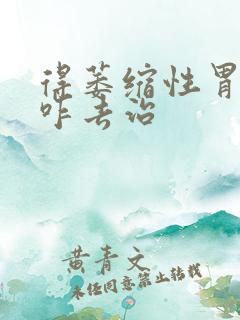 得萎缩性胃
咋去治
黄青文
未经同意禁止转载